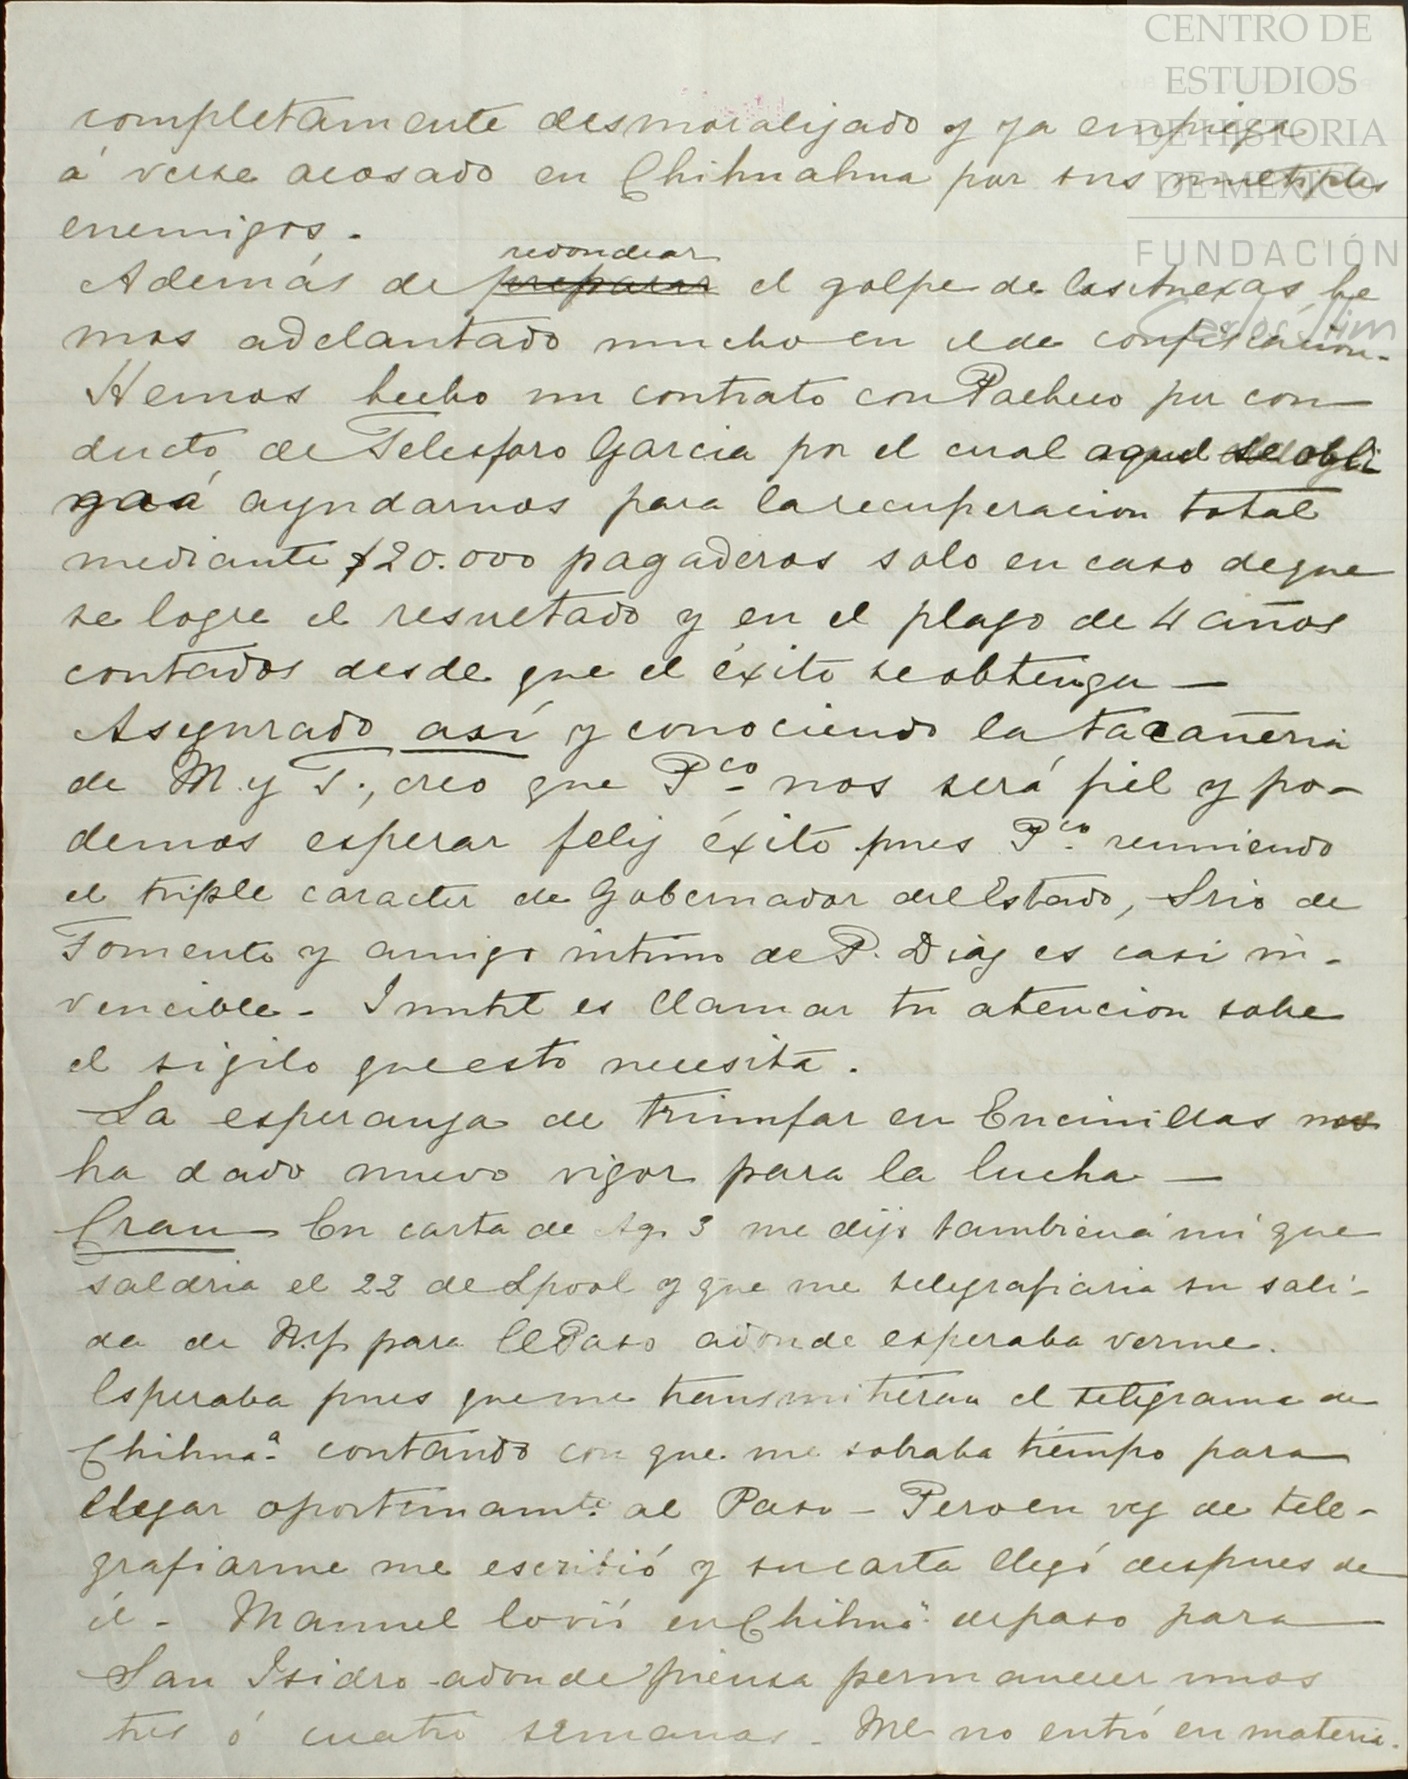 CENTRO DE
ESTUDIOS
DE HISTORIA
DE MÉXICO
FUNDACIÓN
Carlos Slim
completamente desmoralizado y ya empieza
á verse acosado en Chihuahua por sus multiples
enemigos.
redondear
Además de preparar el golpe de las Anexas he
mos adelantado mucho en el de confiscacion.
Hemos hecho un contrato con Pacheco por con
ducto de Telesforo Garcia por el cual aquel se obli
ga á ayudarnos para la recuperacion total
mediante $20.000 pagaderos solo en caso de que
se logre el resultado y en el plazo de 4 años
contados desde que el éxito se obtenga —
Asegurado así y conociendo la tacañeria
de M. y T., creo que Pco nos será fiel y po-
demos esperar feliz éxito pues Pco reuniendo
el triple caracter de Gobernador del Estado, Srio de
Fomento y amigo intimo de P. Diaz es casi in-
vencible - Inutil es llamar tu atencion sobre
el sigilo que esto necesita.
La esperanza de triunfar en Encinillas nos
ha dado nuevo vigor para la lucha —
Crau En carta de Ag. 3 me dijo tambien á mí que
saldria el 22 de Lpool y que me telegrafiaria su sali-
da de N.Y. para El Paso adonde esperaba verme.
Esperaba pues que me transmitieran el telegrama de
Chihuaª contando con que me sobraba tiempo para
llegar oportunamte al Paso - Pero en vez de tele-
grafiarme me escribió y su carta llegó despues de
él - Manuel lo vió en Chihuª de paso para
San Isidro adonde piensa permanecer unos
tres ó cuatro semanas. Ml no entró en materia.